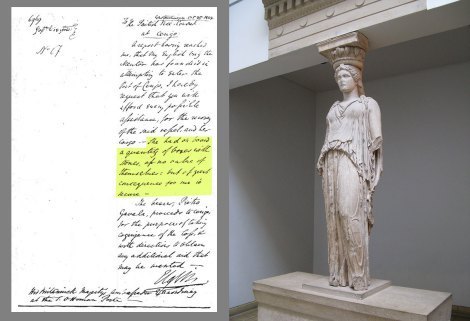 To the British Vice Consul
at Cerigo.
A report having reached
me, that my English brig the
Mentor has foundered in
attempting to enter the
Port of Cerigo, I hereby
request that you will
afford every possible
assistance, for the rescue
of the said vessel and her
cargo - She had on board
a quantity of boxes with
stones of no value of
themselves; but of great
consequence for me to
secure -
The bearer,
Gavala, proceeds to Cerigo
for the purpose of taking
cognizance of the loss, &
with directions to obtain
any additional aid that
may be wanted -
Elgin
His Britannick Majesty's Ambassador Extraordinary
at the S. Ottoman Porte